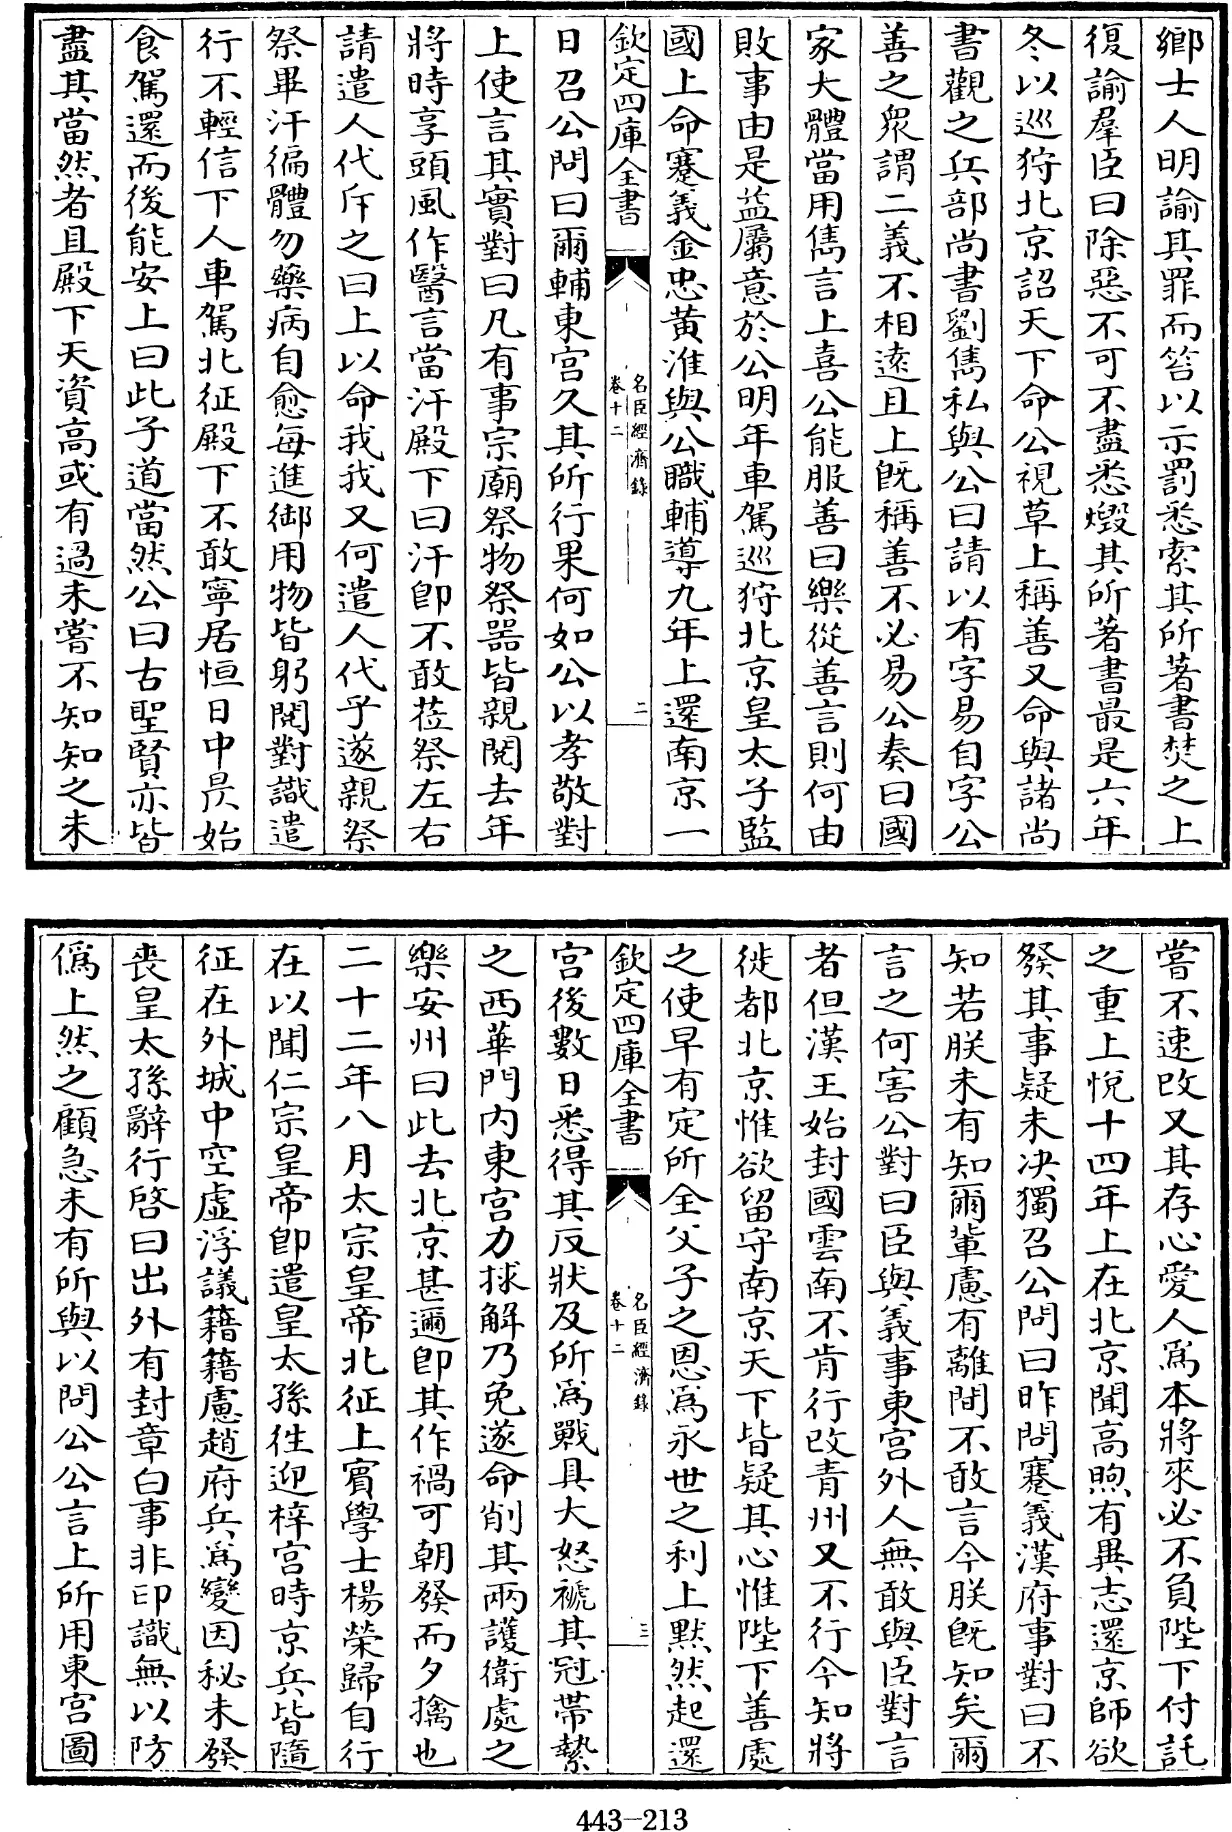 鄉士人明諭其罪而笞以示罰悉索其所著書焚之上
復諭羣臣曰除惡不可不盡悉燬其所著書最是六年
冬以巡狩北京詔天下命公視草上稱善又命與諸尚
書觀之兵部尚書劉儁私與公曰請以有字易自字公
善之衆謂二義不相遠且上既稱善不必易公奏曰國
家大體當用儁言上喜公能服善曰樂從善言則何由
敗事由是益屬意於公明年車駕巡狩北京皇太子監
國上命蹇義金忠黃淮與公職輔導九年上還南京一
欽定四庫全書
名臣經濟錄
卷十二
二
日召公問曰爾輔東宮久其所行果何如公以孝敬對
上使言其實對曰凡有事宗廟祭物祭器皆親閱去年
將時享頭風作醫言當汗殿下曰汗卽不敢莅祭左右
請遣人代斥之曰上以命我我又何遣人代乎遂親祭
祭畢汗徧體勿藥病自愈每進御用物皆躬閱對識遣
行不輕信下人車駕北征殿下不敢寧居恒日中昃始
食駕還而後能安上曰此子道當然公曰古聖賢亦皆
盡其當然者且殿下天資高或有過未嘗不知知之未
嘗不速改又其存心愛人爲本將來必不負陛下付託
之重上悅十四年上在北京聞高煦有異志還京師欲
發其事疑未决獨召公問曰昨問蹇義漢府事對曰不
知若朕未有知爾軰慮有離間不敢言今朕既知矣爾
言之何害公對曰臣與義事東宮外人無敢與臣對言
者但漢王始封國雲南不肯行改青州又不行今知將
徙都北京惟欲留守南京天下皆疑其心惟陛下善處
之使早有定所全父子之恩爲永世之利上默然起還
欽定四庫全書
名臣經濟錄
卷十二
三
宮後數日悉得其反狀及所爲戰具大怒褫其冠帶縶
之西華門内東宮力捄解乃免遂命削其兩護衛處之
樂安州曰此去北京甚邇卽其作禍可朝發而夕擒也
二十二年八月太宗皇帝北征上賓學士楊榮歸自行
在以聞仁宗皇帝卽遣皇太孫徃迎梓宮時京兵皆隨
征在外城中空虛浮議籍籍慮趙府兵爲變因秘未發
喪皇太孫辭行啓曰出外有封章白事非印識無以防
僞上然之顧急未有所與以問公公言上所用東宮圖
443-213